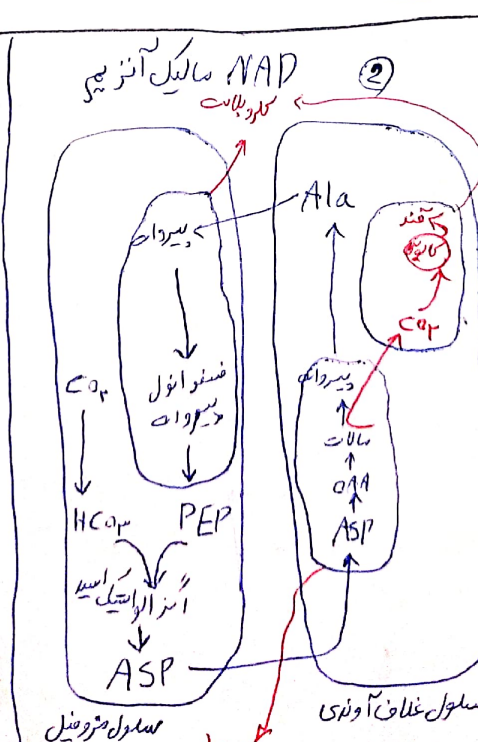 ② NAD مالیک آنزیم
کلروپلاست
Ala
پیروات
قند
کالوین
CO₂
CO₂
فسفو انول
پیروات
پیروات
مالات
OAA
ASP
HCO₃
PEP
اگزالواستیک اسید
ASP
سلول مزوفیل
سلول غلاف آوندی